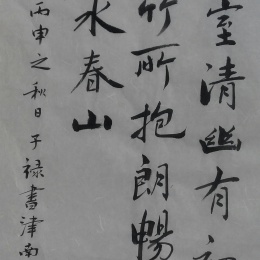 室清幽有
竹所抱朗暢
水春山
丙申之秋日子祿書津南